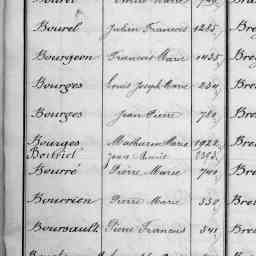 Bourel Julien Francois 1285 Bre
Bourgeon Francois Marie 1435 Bre
Bourges Louis Joseph Marie 254 Bre
Bourges Jean Pierre 780 Bre
Bourges Mathurin Marie 1922 Bre
Boitriel Jean Benoit 2393
Bourré Pierre Marie 740 Bre
Bourrien Pierre Marie 550 Bre
Boursault Pierre Francois 541 Bre